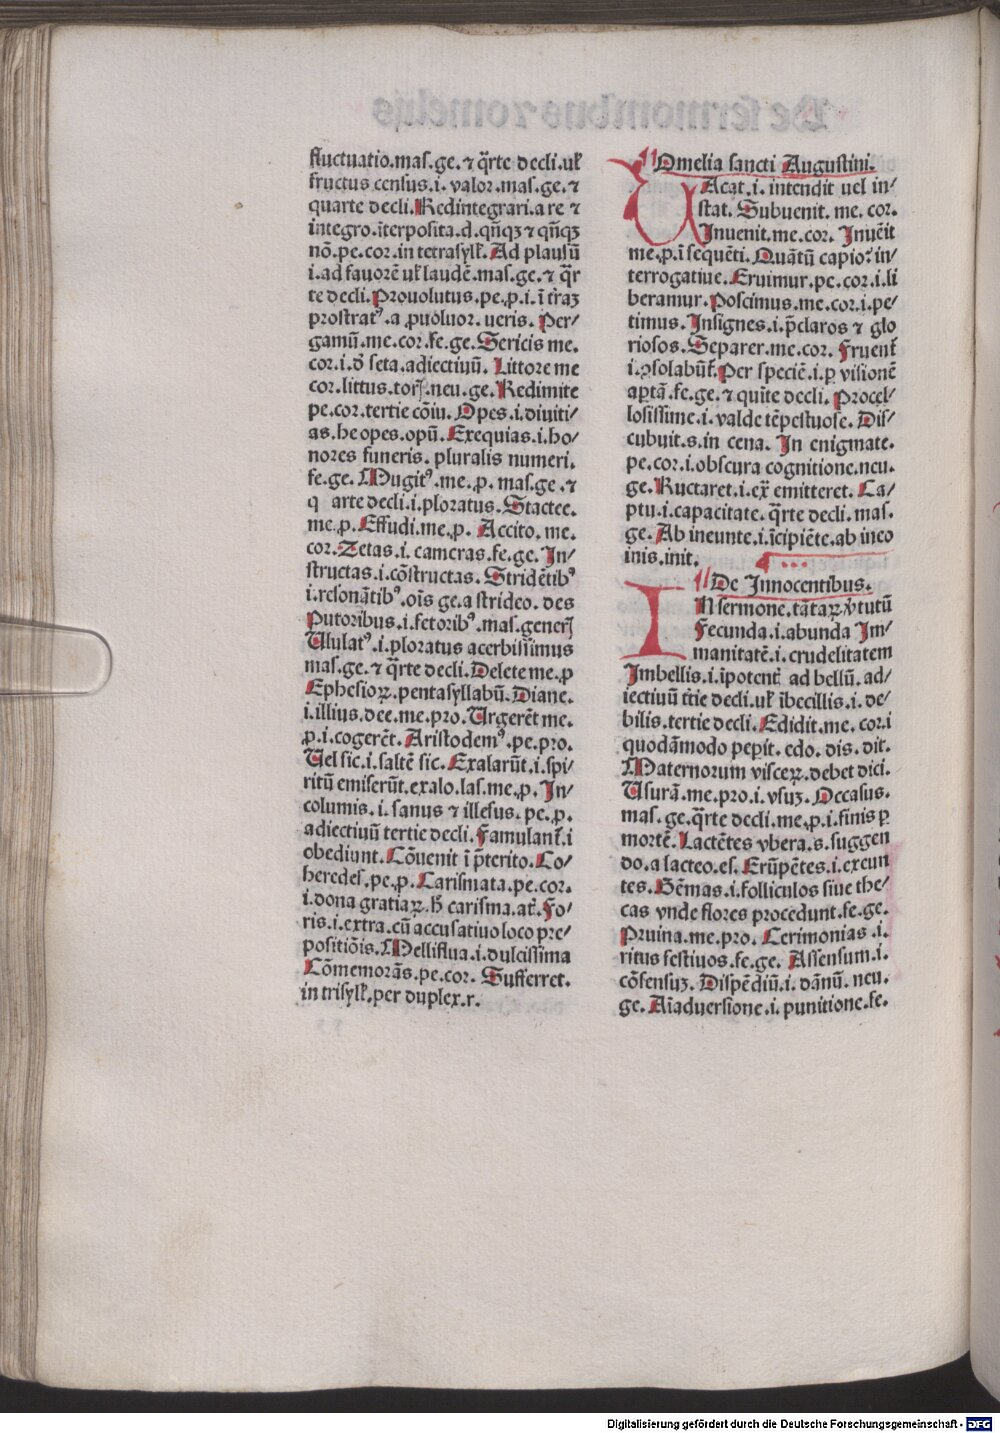 fluctuatio.mas.ge.⁊ q̈rte decli.uł
fructus census.i.valor.mas.ge.⁊
quarte decli.Redintegrari.a re ⁊
integro.īterposita.d.qn̄qꝫ ⁊ qn̄qꝫ
nō.pe.cor.in tetrasył.Ad plausū
i.ad fauorē uł laudē.mas.ge.⁊ q̈r
te decli.Prouolutus.pe.p.i.ī trāꝫ
prostratꝰ.a ꝓuoluor.ueris.Per⸗
gamū.me.cor.fe.ge.Sericis me.
cor.i.ð seta.adiectiuū. Littore me
cor.littus.toris.neu.ge.Redimite
pe.cor.tertie cōiu. Opes.i.diuiti⸗
as.he opes.opū.Exequias.i.ho⸗
nores funeris. pluralis numeri.
fe.ge.Mugitꝰ.me.ꝓ. mas.ge.⁊
q arte decli.i.ploratus.Stactee.
me.ꝓ.Effudi.me.ꝓ. Accito.me.
cor.Zetas.i.cameras.fe.ge.In⸗
structas.i.cōstructas. Stridētibꝰ
i.resonātibꝰ.oīs ge.a strideo.des
Putoribus.i.fetoribꝰ.mas.generꝭ
Ululatꝰ.i.ploratus acerbissimus
mas.ge.⁊ q̈rte decli.Delete me.ꝓ
Ephesioꝝ.pentasyllabū.Diane.
i.illius.dee.me.pro.Urgerēt me.
ꝓ.i.cogerēt.Aristodemꝰ.pe.pro.
Uel sic.i.saltē sic.Exalarūt.i.spi⸗
ritū emiserūt.exalo.las.me.ꝓ.In⸗
columis.i.sanus ⁊ illesus.pe.ꝓ.
adiectiuū tertie decli.Famulant̄.i
obediunt.Cōuenit ī p̄terito.Co⸗
heredes.pe.ꝓ.Carismata.pe.cor.
i.dona gratiaꝝ.h̄ carisma.at̄.Fo⸗
ris.i.extra.cū accusatiuo loco pre⸗
positiōis.Melliflua.i.dulcissima
Cōmemorās.pe.cor. Sufferret.
in trisył.per duplex.r.
Omelia sancti Augustini.
UAcat.i.intendit uel in⸗
stat. Subuenit.me.cor.
Inuenit.me.cor. Inuēit
me.ꝓ.ī sequēti.Quātū capio:in⸗
terrogatiue.Eruimur.pe.cor.i.li
beramur.Poscimus.me.cor.i.pe⸗
timus.Insignes.i.p̄claros ⁊ glo
riosos.Separer.me.cor. Fruent̄
i.ꝯsolabūt̄.Per speciē.i.ꝑ visionē
aꝑtā.fe.ge.⁊ quīte decli. Procel⸗
losissime.i.valde tēpestuose.Dis⸗
cubuit.s.in cena. In enigmate.
pe.cor.i.obscura cognitione.neu.
ge.Ructaret.i.ex̄ emitteret. Ca⸗
ptu.i.capacitate.q̈rte decli.mas.
ge.Ab ineunte.i.īcipiēte.ab ineo
inis.init.
De Innocentibus.
IN sermone.tātaꝝ v̄tutū
Fecunda.i.abunda Im⸗
manitatē.i.crudelitatem
Imbellis.i.īpotens ad bellū.ad⸗
iectiuū t̄tie decli.uł ībecillis.i.de⸗
bilis.tertie decli.Edidit.me.cor.i
quodāmodo peꝑit.edo.dis.dit.
Maternorum visceꝝ.debet dici.
Usurā.me.pro.i.vsuꝫ.Occasus.
mas.ge.q̈rte decli.me.ꝓ.i.finis ꝑ
mortē.Lactētes vbera.s.suggen
do.a lacteo.es.Erūpētes.i.exeun
tes.Gēmas.i.folliculos siue the⸗
cas vnde flores procedunt.fe.ge.
Pruina.me.pro. Cerimonias.i.
ritus festiuos.fe.ge. Assensum.i.
cōsensuꝫ. Dispēdiū.i.dānū.neu.
ge.Aīaduersione.i.punitione.fe.
Digitalisierung gefördert durch die Deutsche Forschungsgemeinschaft - DFG